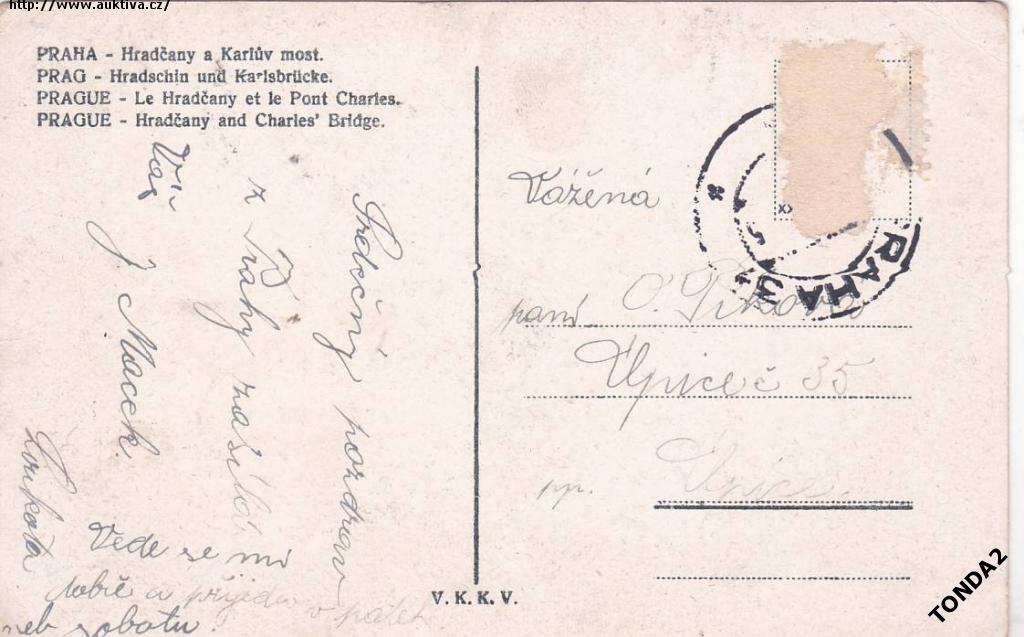 http://www.auktiva.cz/
PRAHA - Hradčany a Karlův most.
PRAG - Hradschin und Karlsbrücke.
PRAGUE - Le Hradčany et le Pont Charles.
PRAGUE - Hradčany and Charles' Bridge.
Srdečný pozdrav
z Prahy zasílá
Váš
J Macek.
Vede se mi
dobře a přijedu v pátek
neb sobotu.
V. K. K. V.
PRAHA 3
Vážená
paní O. Piková
Úpice č 35
pp. Úpice.
TONDA2